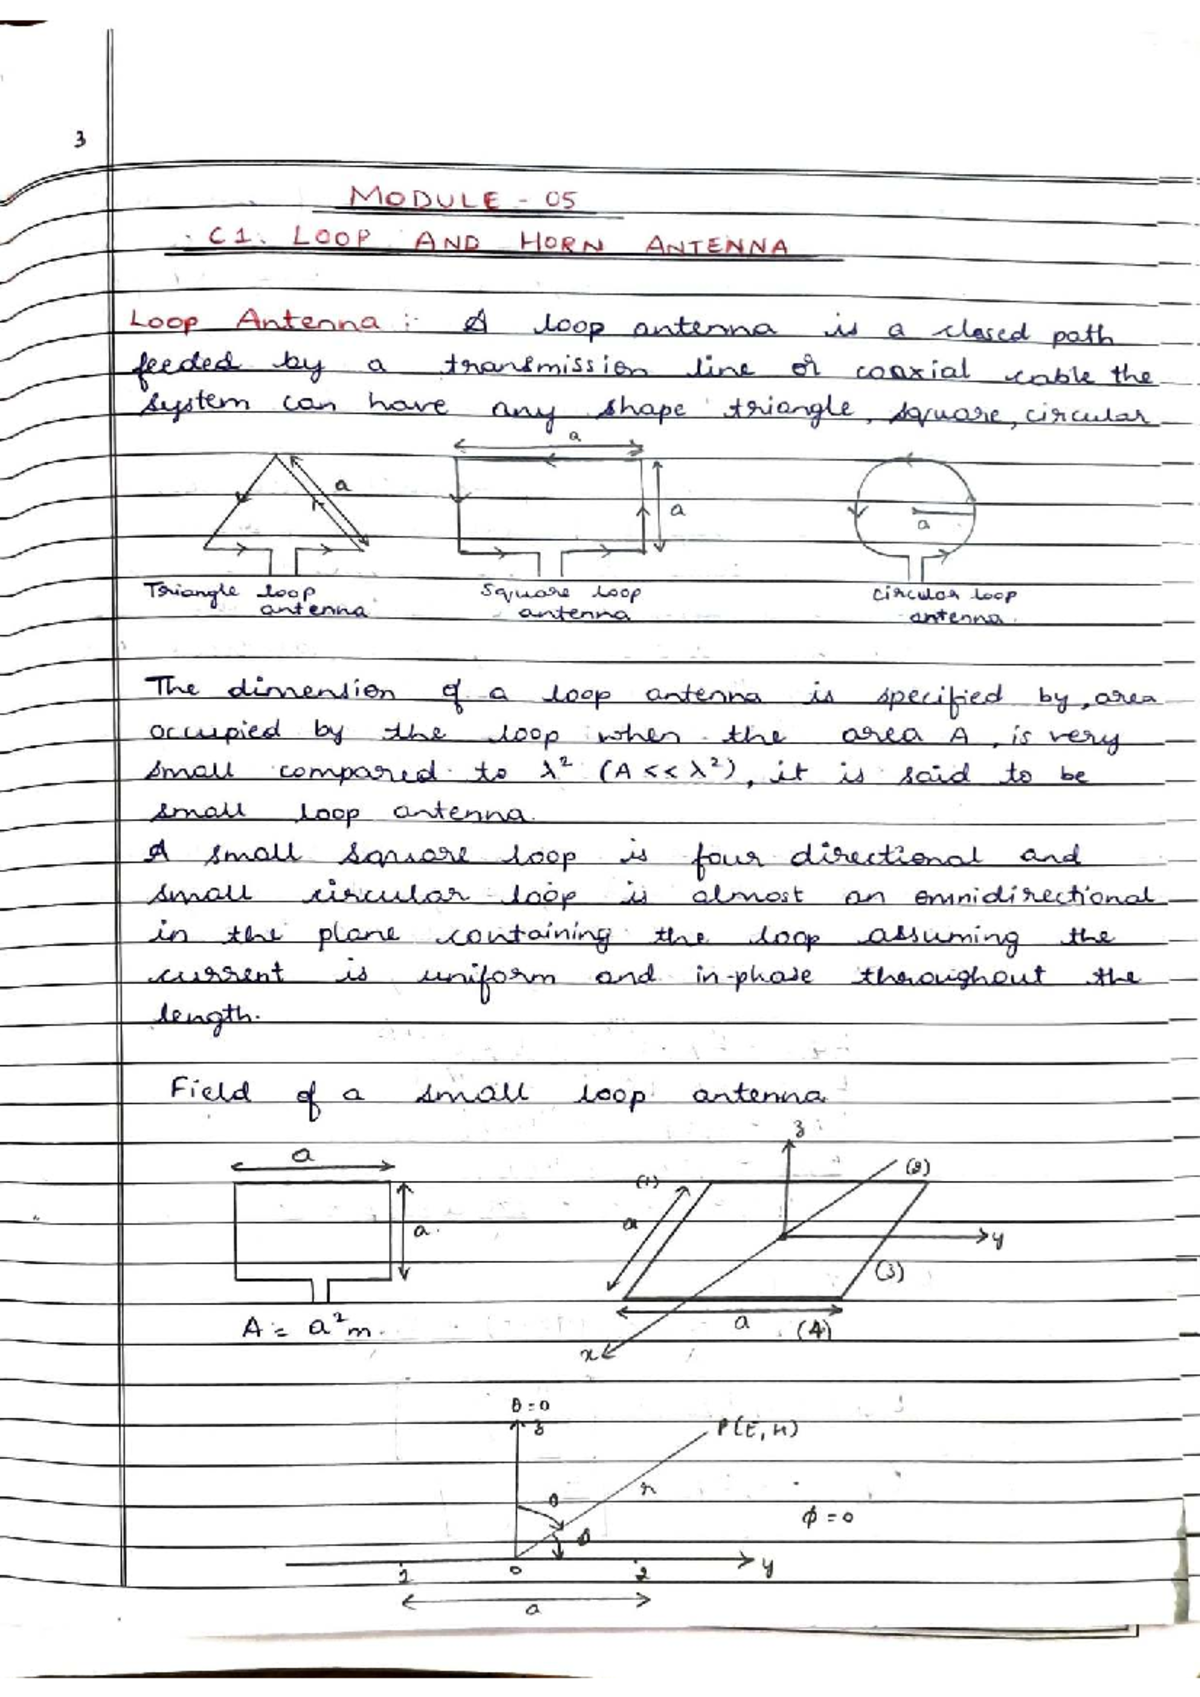 3
MODULE - 05
C1. LOOP AND HORN ANTENNA
Loop Antenna :- A loop antenna is a closed path
feeded by a transmission line or coaxial cable the
system can have any shape triangle, square, circular
a
a
a
a
Triangle loop antenna
Square loop antenna
circular loop antenna.
The dimension of a loop antenna is specified by, area
occupied by the loop when the area A, is very
small compared to λ² (A << λ²), it is said to be
small loop antenna.
A small square loop is four directional and
small circular loop is almost an omnidirectional
in the plane containing the loop assuming the
current is uniform and in-phase throughout the
length.
Field of a small loop antenna
a
a
A = a²m.
z
(1)
(2)
a
y
(3)
a
(4)
x
θ = 0
z
P(E, H)
r
θ
ϕ = 0
1
0
2
y
a